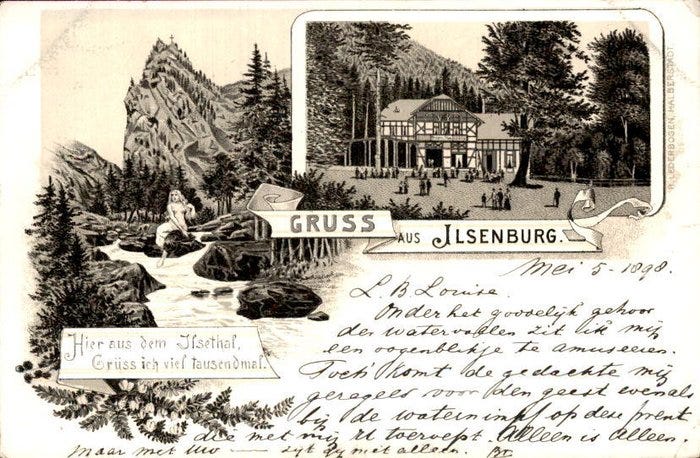 GRUSS AUS ILSENBURG.
Hier aus dem Ilsethal,
Grüss ich viel tausendmal.
LEDERBOGEN, HALBERSTADT.
Mei 5 - 1898.
L. B. Louise.
Onder het goddelijk gehoor
der watervallen zit ik mij
een oogenblikje te amuseeren.
Toch komt de gedachte mij
voor den geest evenals
bij de waternimf op deze prent
die met mij U toeroept. Alleen is Alleen.
maar met Uw — zijt gij met alleen.